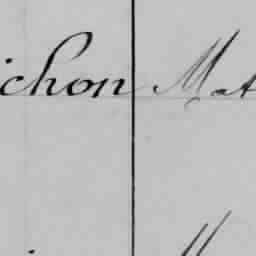 ichon Mat